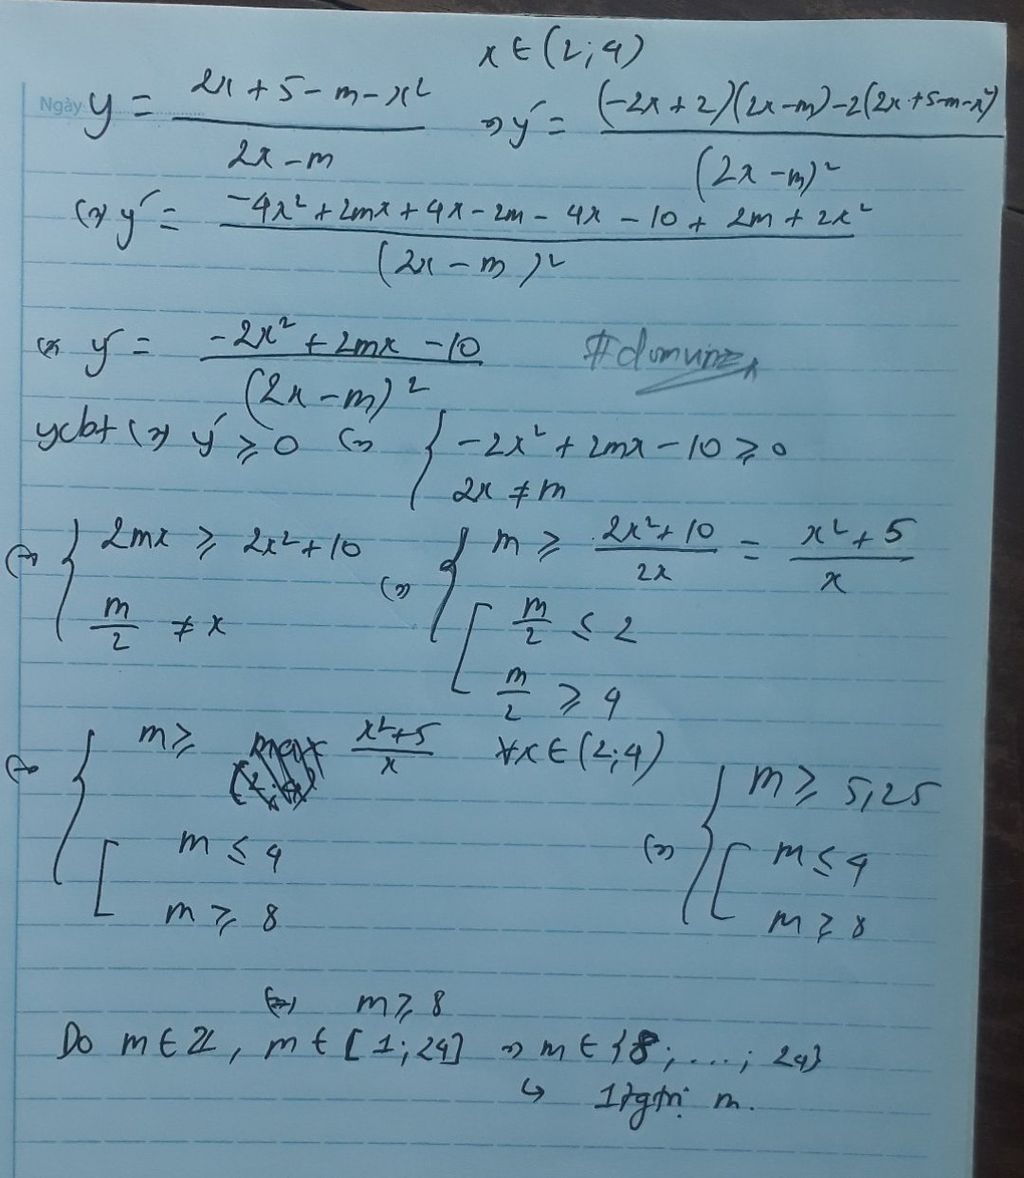 x ∈ (2; 4)
Ngày y = (2x + 5 - m - x²)/(2x - m) => y' = ((-2x + 2)(2x - m) - 2(2x + 5 - m - x²))/(2x - m)²
(=) y' = (-4x² + 2mx + 4x - 2m - 4x - 10 + 2m + 2x²)/(2x - m)²
(=) y' = (-2x² + 2mx - 10)/(2x - m)²
ycbt (=) y' ≥ 0 (=) { -2x² + 2mx - 10 ≥ 0
2x ≠ m
(=) { 2mx ≥ 2x² + 10
m/2 ≠ x
(=) { m ≥ (2x² + 10)/2x = (x² + 5)/x
[ m/2 ≤ 2
m/2 ≥ 4
(=) { m ≥ (x² + 5)/x ∀x ∈ (2; 4)
[ m ≤ 4
m ≥ 8
(=) { m ≥ 5,25
[ m ≤ 4
m ≥ 8
(=) m ≥ 8
Do m ∈ Z, m ∈ [1; 24] => m ∈ {8; ...; 24}
↳ 17 gtrị m.